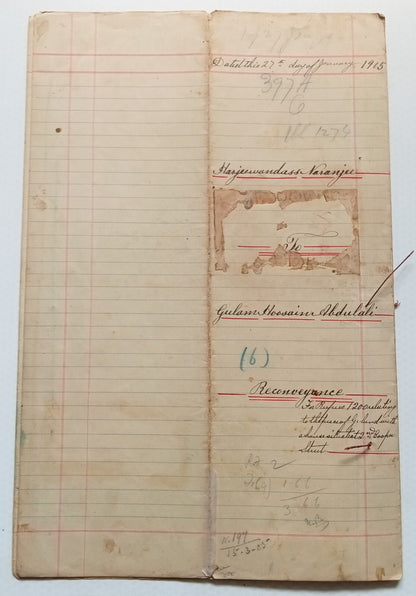 Dated this 27th day of January 1905
397A
6
1274
Harjeewandass Naranjee
To
Gulam Hoosain Abdulali
(6)
Reconveyance
For Rupees 1200 relating
to the piece of
a house situated 2nd Cooper
Street
2
1.66
3.66
n. 197
15-3-05